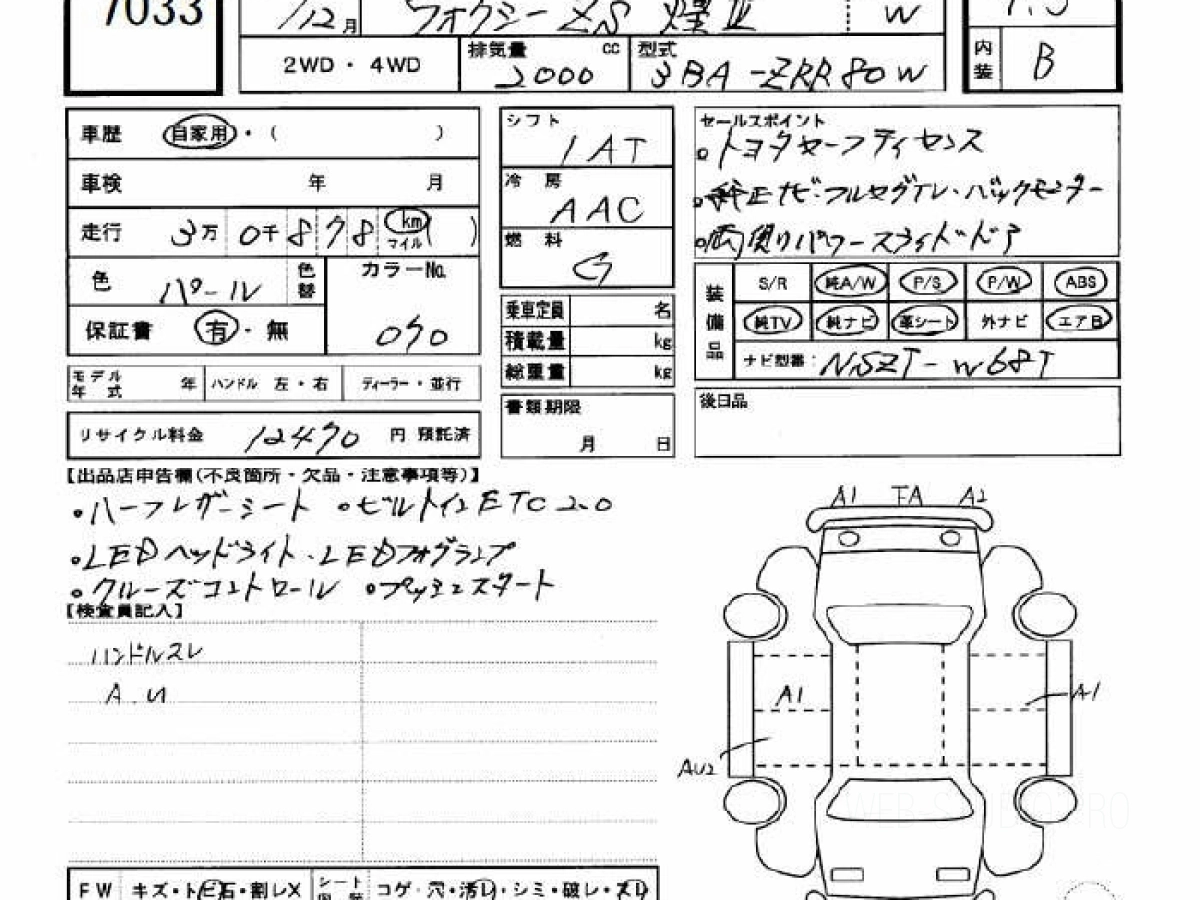 7033
/12月 ヴォクシー ZS 煌Ⅲ W
2WD・4WD 排気量 2000 cc 型式 3BA-ZRR80W
内装 B
車歴 自家用・( )
車検 年 月
走行 3万0千878 km マイル ( )
色 パール 色替 カラーNo. 070
保証書 有・無
モデル年式 年 ハンドル 左・右 ディーラー・並行
リサイクル料金 12470 円 預託済
シフト IAT
冷房 AAC
燃料 G
乗車定員 名
積載量 kg
総重量 kg
書類期限 月 日
セールスポイント
・トヨタセーフティセンス
・純正ナビ・フルセグTV・バックモニター
・両側パワースライドドア
装備品 S/R 純A/W P/S P/W ABS
純TV 純ナビ 革シート 外ナビ エアB
ナビ型番: NSZT-W68T
後日品
【出品店申告欄(不良箇所・欠品・注意事項等)】
・ハーフレザーシート ・ビルトインETC2.0
・LEDヘッドライト・LEDフォグランプ
・クルーズコントロール ・プッシュスタート
【検査員記入】
ハンドルスレ
A.U
A1 FA A2
A1 A1
AU2
WEB-STUDIO.PRO
FW キズ・トビ石・割レX シート内装 コゲ・穴・汚レ・シミ・破レ・スレ